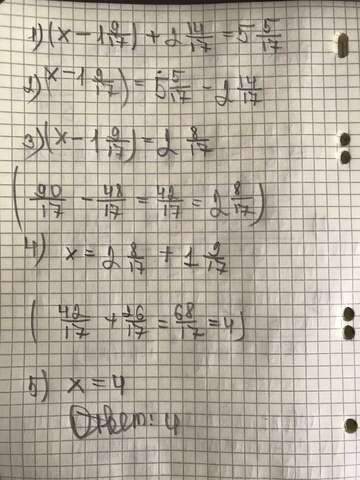 1) (x - 1 9/17) + 2 14/17 = 5 5/17
2) x - 1 9/17) = 5 5/17 - 2 14/17
3) (x - 1 9/17) = 2 8/17
(90/17 - 48/17 = 42/17 = 2 8/17)
4) x = 2 8/17 + 1 9/17
(42/17 + 26/17 = 68/17 = 4)
5) x = 4
Ответ: 4